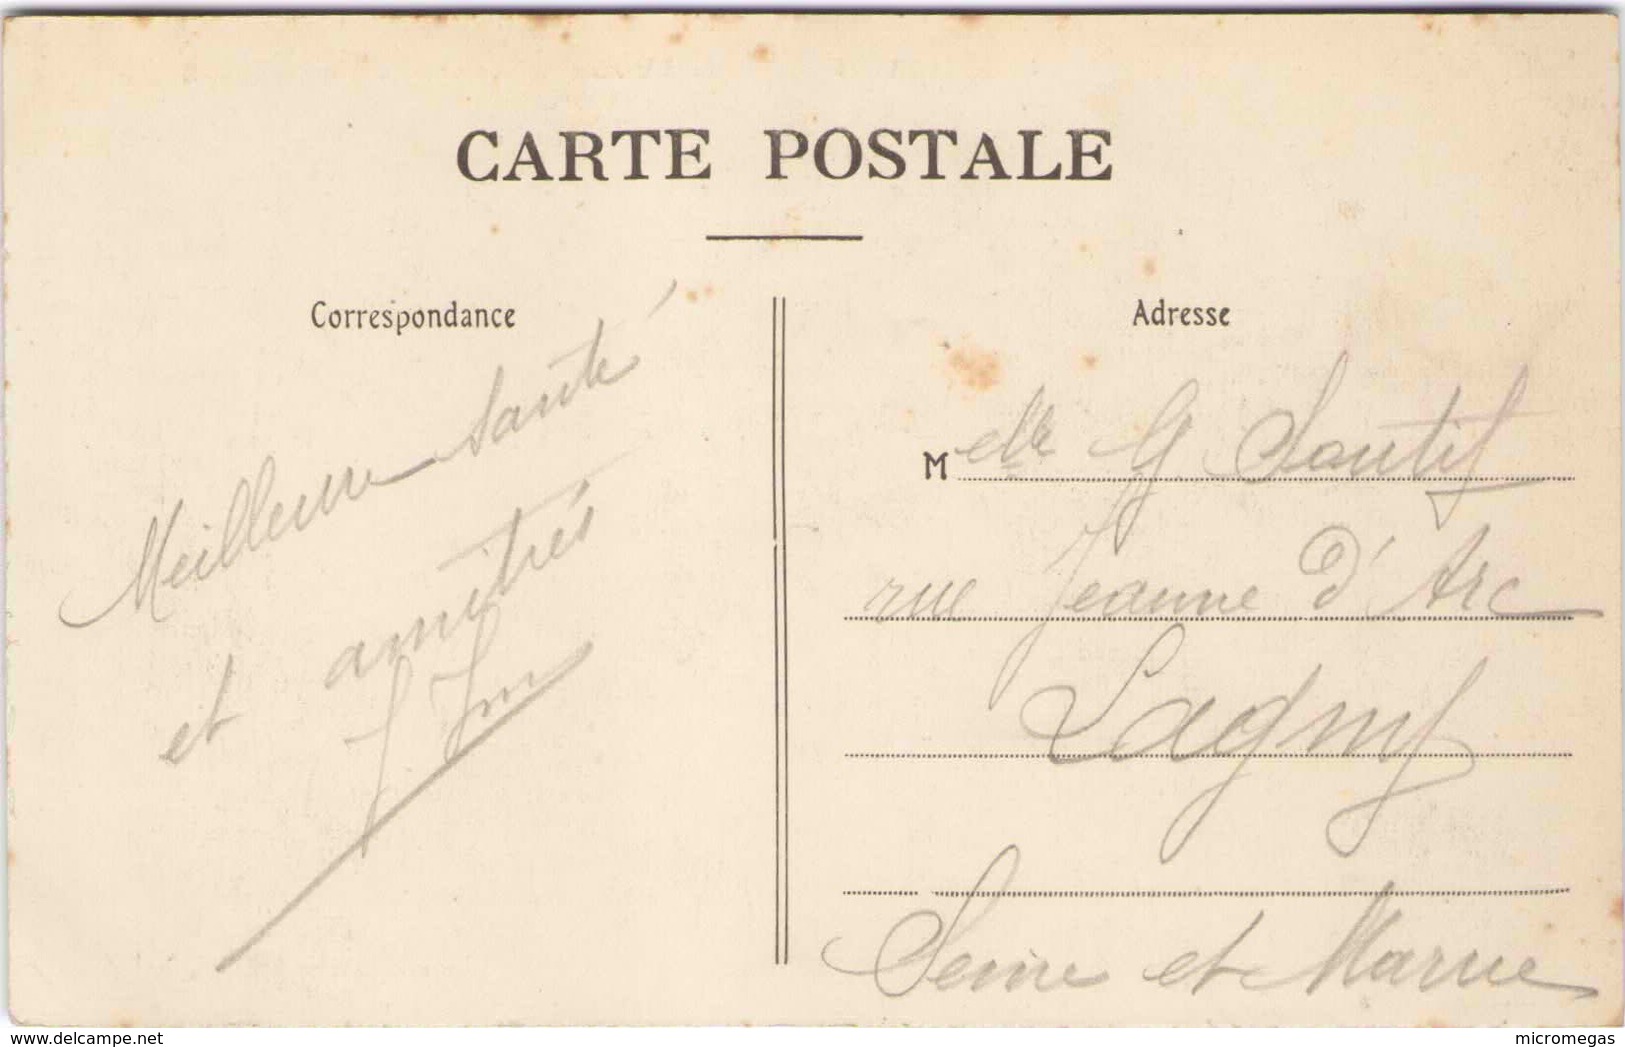 CARTE POSTALE
Correspondance
Meilleure santé
et amitiés
Adresse
Melle G Sautif
rue Jeanne d'Arc
Lagny
Seine et Marne
delcampe.net
micromegas